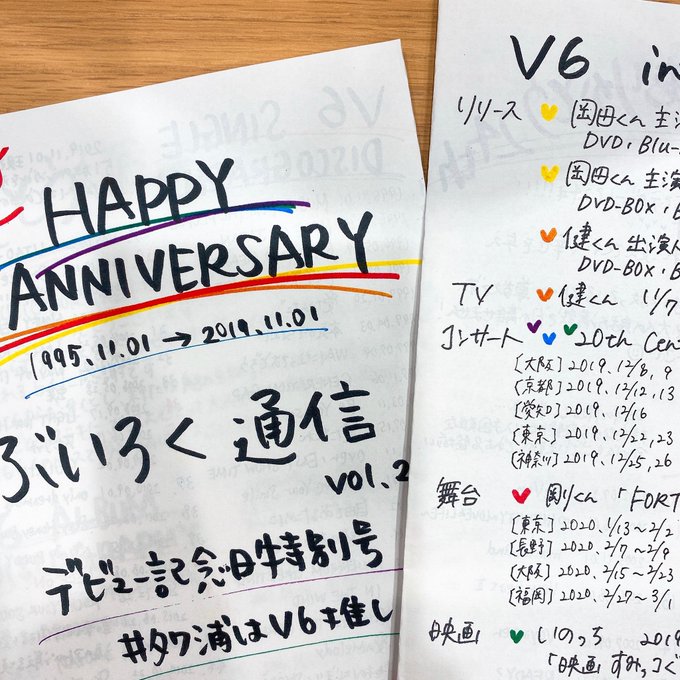 HAPPY
ANNIVERSARY
1995.11.01 → 2019.11.01
ぶいろく通信
vol.2
デビュー記念日特別号
#タワ浦はV6推し
V6 in
リリース 岡田くん 主演
DVD・Blu-
岡田くん 主演
DVD-BOX・B
健くん 出演
DVD-BOX・B
TV 健くん 11/7
コンサート 20th Cen
[大阪] 2019.12/8,9
[京都] 2019.12/12,13
[愛知] 2019.12/16
[東京] 2019.12/22,23
[神奈川] 2019.12/25,26
舞台 剛くん 「FORT
[東京] 2020.1/13~2/2
[長野] 2020.2/7~2/9
[大阪] 2020.2/15~2/23
[福岡] 2020.2/27~3/1
映画 いのっち 2019
「映画 すみっコぐ